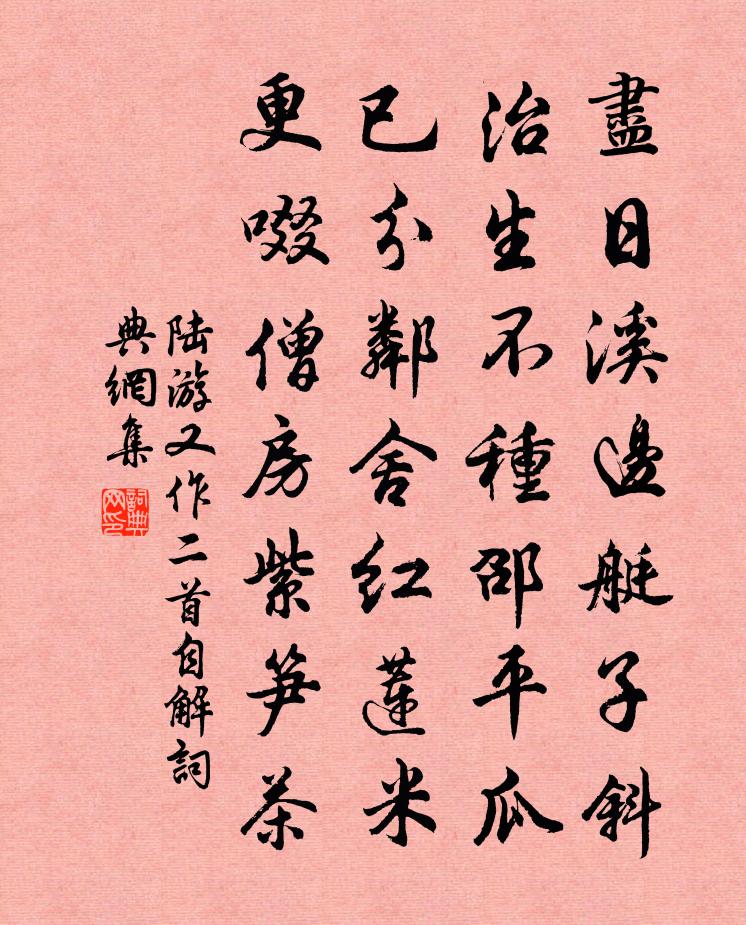 盡日溪邊艇子斜
治生不種邵平瓜
已分鄰舍紅蓮米
更啜僧房紫笋茶
陆游又作二首自解詞
典網集
詞典网印